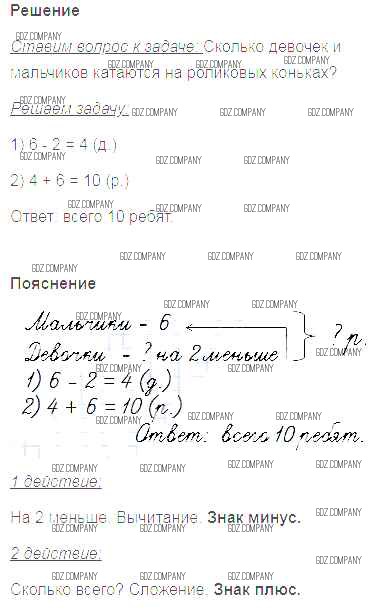 Решение
Ставим вопрос к задаче: Сколько девочек и
мальчиков катаются на роликовых коньках?
Решаем задачу:
1) 6 - 2 = 4 (д.)
2) 4 + 6 = 10 (р.)
Ответ: всего 10 ребят.
Пояснение
Мальчики - 6
? р.
Девочки - ? на 2 меньше
1) 6 - 2 = 4 (д.)
2) 4 + 6 = 10 (р.)
Ответ: всего 10 ребят.
1 действие:
На 2 меньше. Вычитание. Знак минус.
2 действие:
Сколько всего? Сложение. Знак плюс.
GDZ.COMPANY